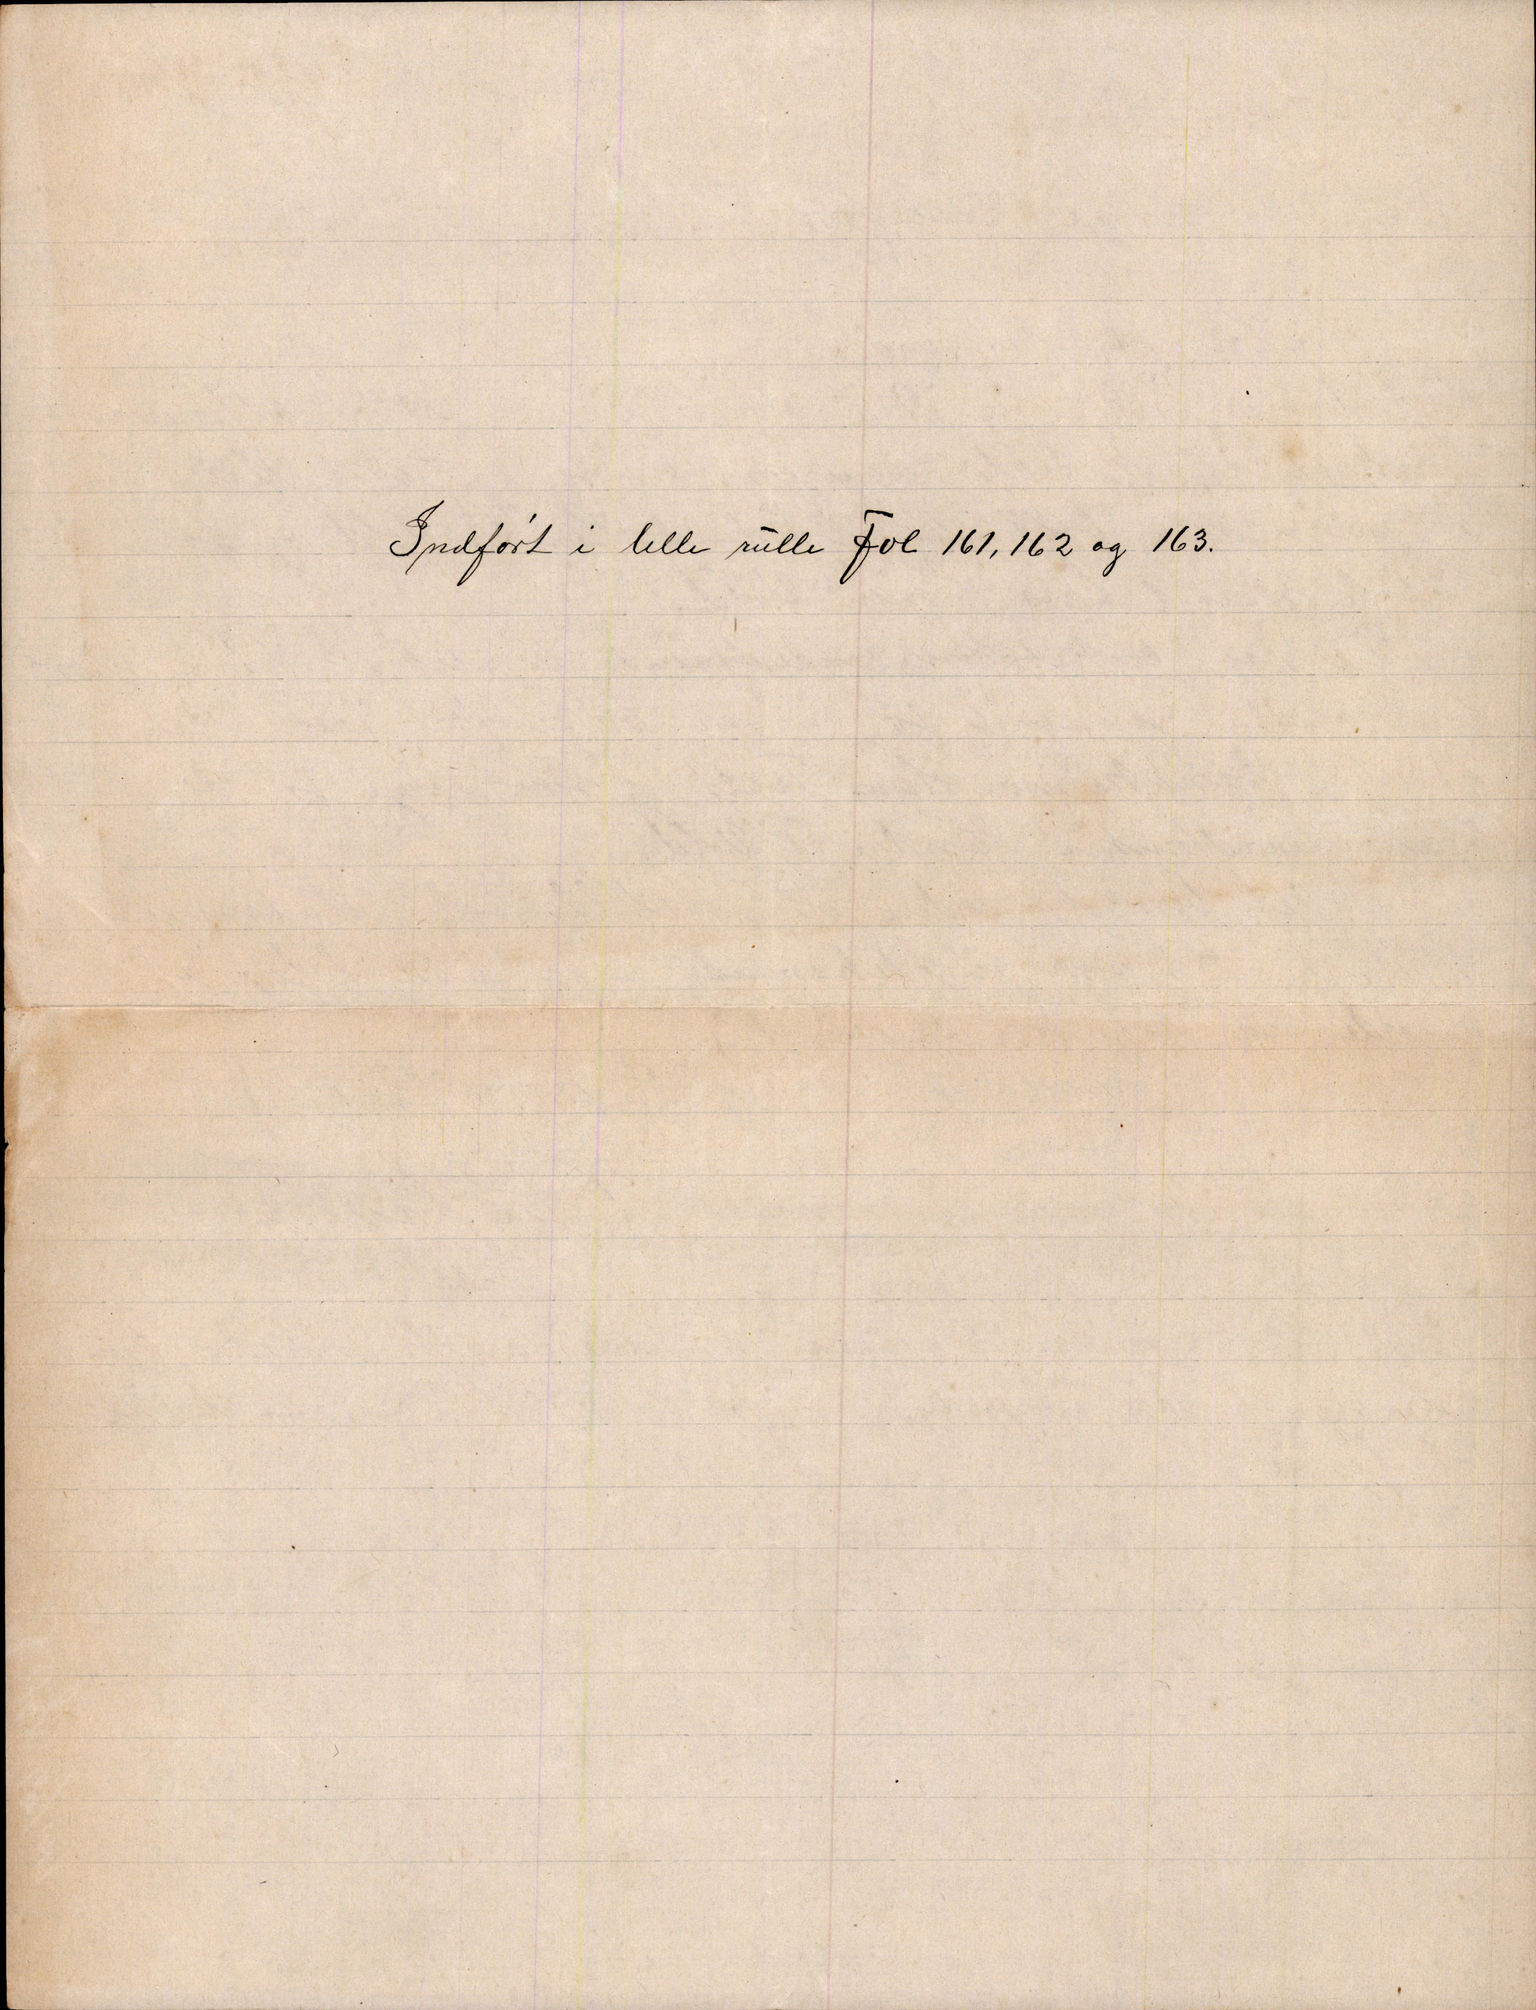 Indført i lille rulle Fol 161, 162 og 163.